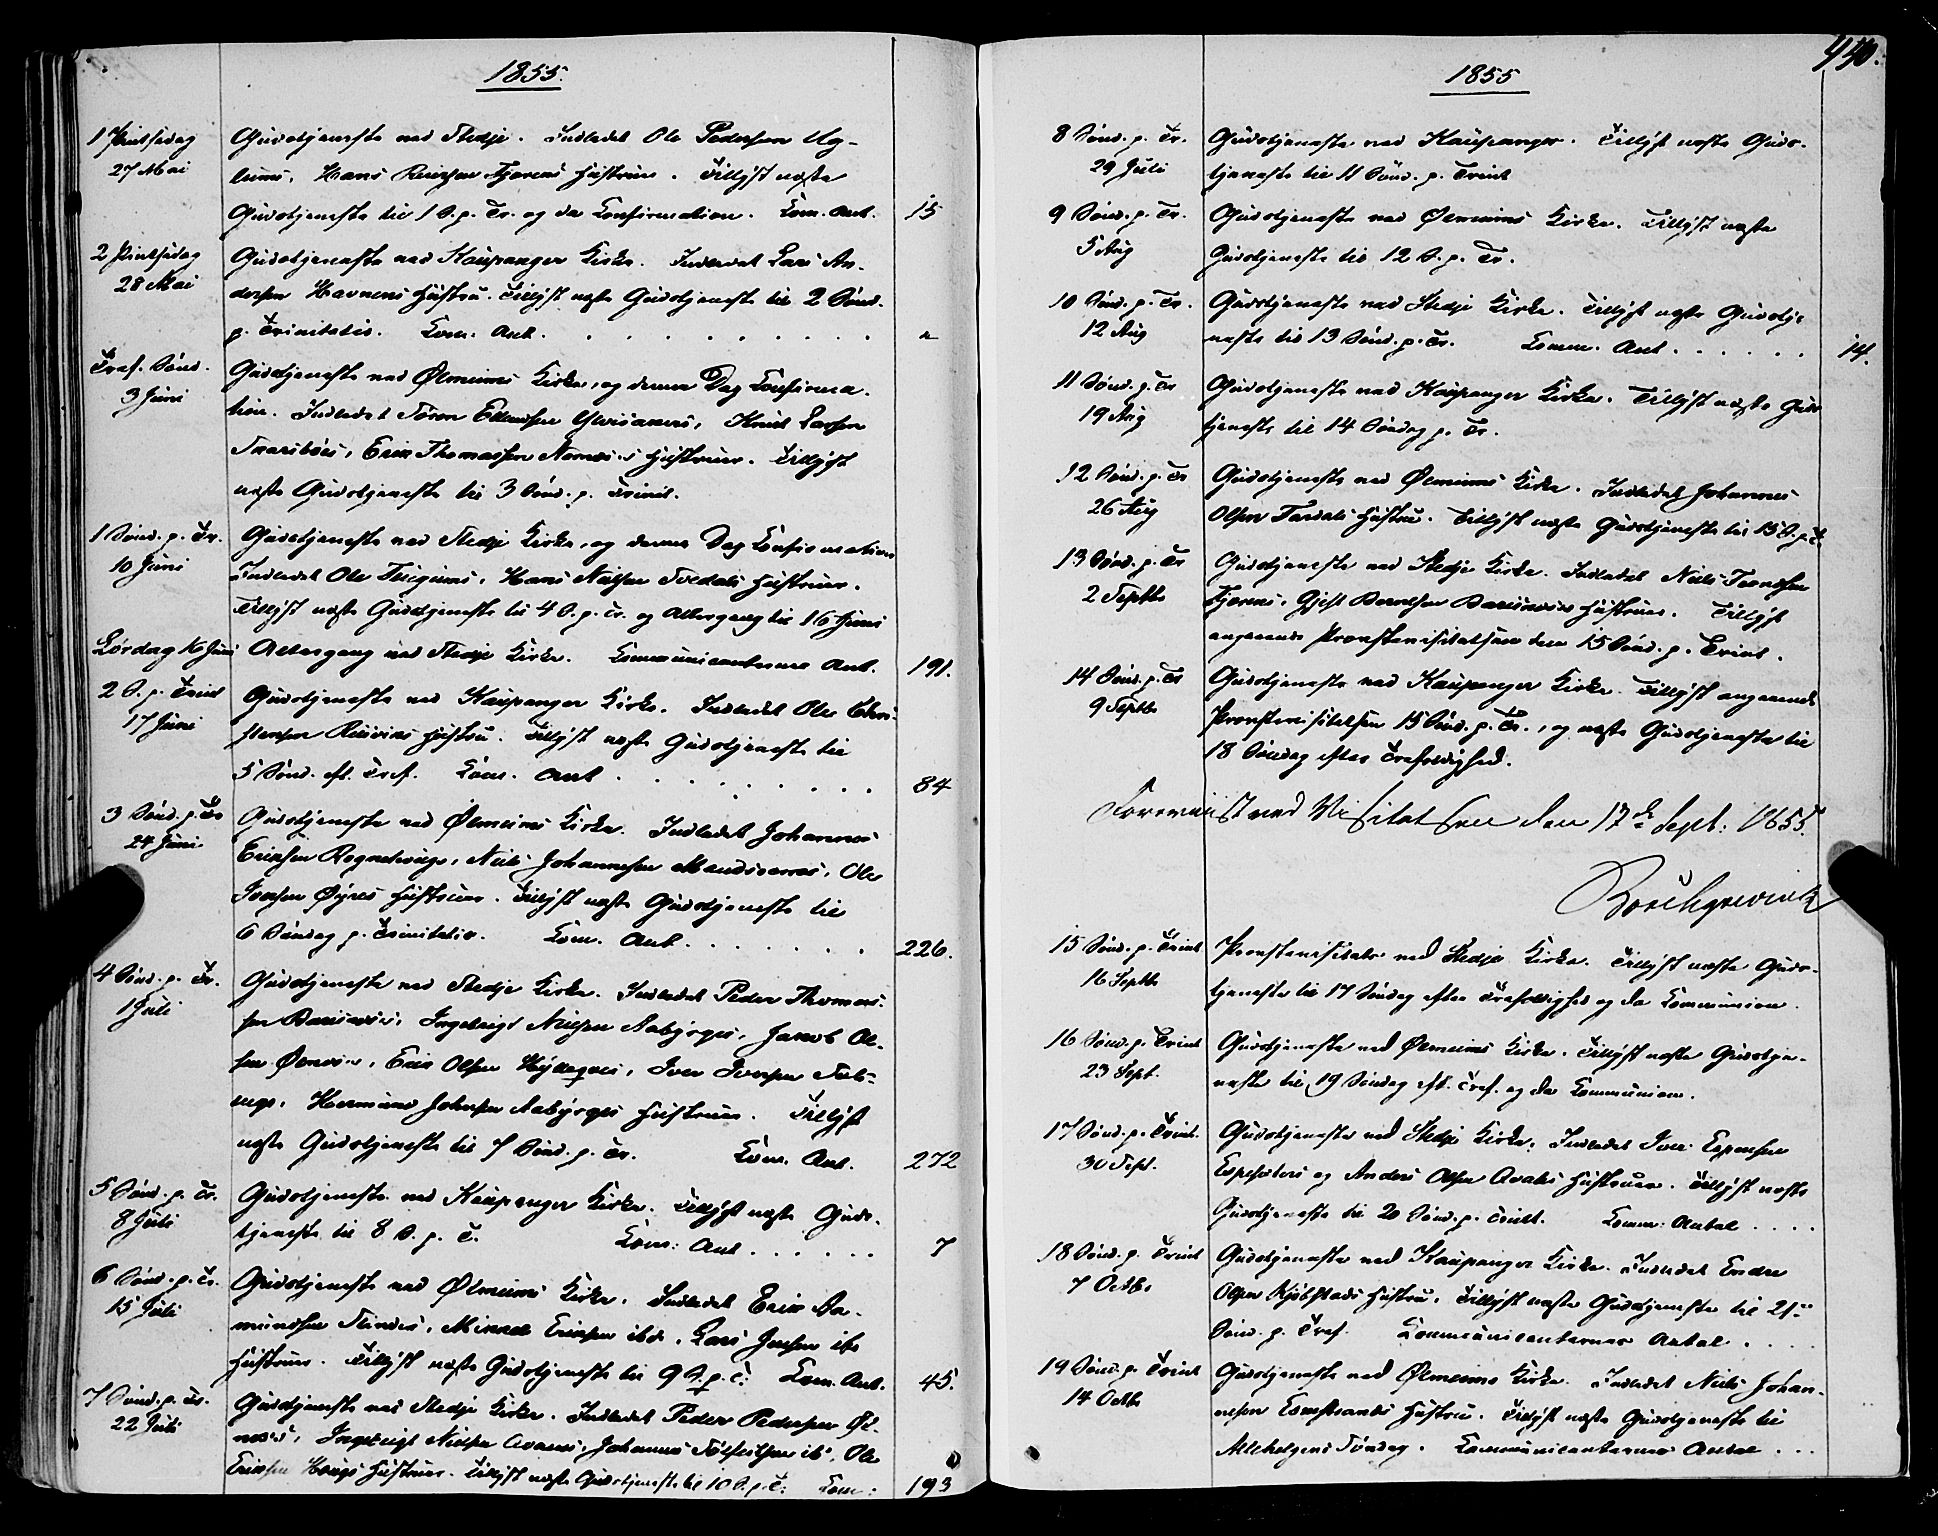 1855.
1 Pintsedag Gudstjeneste ved Stedje. Indledet Ole Pedersen
27 Mai Hans Fjærens Hustruer. Tillyst næste
Gudstjeneste til 1 S. p. Tr. og da Confirmation. Com. Ant. 15
2 Pintsedag Gudstjeneste ved Kaupanger Kirke. Indledet Lars An-
28 Mai dersen Havnens Hustru. Tillyst næste Gudstjeneste til 2 Sønd.
p. Trinitatis. Com. Ant. . . . . . . . . . "
Tref. Sønd. Gudstjeneste ved Ølmeims Kirke, og denne Dag Confirma-
3 Juni tion. Indledet Ellendsen Knud Larsen
Erik Thomassen Hustruer. Tillyst
næste Gudstjeneste til 3 Sønd. p. Trinit.
1 Sønd. p. Tr. Gudstjeneste ved Stedje Kirke, og denne Dag Confirmation
10 Juni Indledet Ole Hans Nielsen Hustruer.
Tillyst næste Gudstjeneste til 4 S. p. Tr. og Altergang til 16 Juni
Lørdag 16 Juni Altergang ved Stedje Kirke. Communicanternes Ant. 191.
2 S. p. Trint Gudstjeneste ved Kaupanger Kirke. Indledet Ole Chri-
17 Juni stensen Hustru. Tillyst næste Gudstjeneste til
5 Sønd. ef. Tref. Com. Ant . . . . . . . . 84
3 Sønd. p. Tr Gudstjeneste ved Ølmeims Kirke. Indledet Johannes
24 Juni Eriksen Niels Johannesen Ole
Iversen Øyres Hustruer. Tillyst næste Gudstjeneste til
6 Søndag p. Trinitatis. Com. Ant. . . . . . . 226.
4 Sønd. p. Tr. Gudstjeneste ved Stedje Kirke. Indledet Peder Thomas-
1 Juli sen Ingebrigt Nielsen Nabjørges, Jacob Ol-
sen Erik Olsen Iver Iversen
Hermund Johnsen Nabjørges Hustruer. Tillyst
næste Gudstjeneste til 7 Sønd. p. Tr. Com. Ant. 272
5 Sønd. p. Tr. Gudstjeneste ved Kaupanger Kirke. Tillyst næste Guds-
8 Juli tjeneste til 8 S. p. T. Com: Ant. . . . . . 7
6 Sønd. p. Tr. Gudstjeneste ved Ølmeims Kirke. Indledet Erik
15 Juli Eriksen ibd. Lars Jensen ib
Hustruer. Tillyst næste Gudstjeneste til 9 S. p. T. Com. Ant. 45.
7 Sønd. p. Tr. Gudstjeneste ved Stedje Kirke. Indledet Peder Pedersen Øl-
22 Juli Ingebrigt Nielsen Johannes ib. Ole
Eriksen Haugs Hustruer. Tillyst næste Gudstjeneste til 10 S. p. T. Com: 193
1855
440.
8 Sønd. p. Tr. Gudstjeneste ved Kaupanger. Tillyst næste Guds-
29 Juli tjeneste til 11 Sønd. p. Trint
9 Sønd. p. Tr. Gudstjeneste ved Ølmeims Kirke. Tillyst næste
5 Aug Gudstjeneste til 12 S. p. Tr.
10 Sønd. p. Tr. Gudstjeneste ved Stedje Kirke. Tillyst næste Gudstje-
12 Aug neste til 13 Sønd. p. Tr. Comm. Ant . . . . . . 14.
11 Sønd. p. Tr Gudstjeneste ved Kaupanger Kirke. Tillyst næste Guds
19 Aug tjeneste til 14 Søndag p. Tr.
12 Sønd. p. Tr Gudstjeneste ved Ølmeims Kirke. Indledet Johannes
26 Aug Olsen Hustru. Tillyst næste Gudstjeneste til 15 S. p. T.
13 Sønd. p. Tr Gudstjeneste ved Stedje Kirke. Indledet Niels
2 Septb Fjærens, Gjest Berntsen Hustruer. Tillyst
angaaende Provstevisitatsen den 15 Sønd. p. Trint.
14 Sønd. p. Tr Gudstjeneste ved Kaupanger Kirke. Tillyst angaaende
9 Septb Provstevisitatsen 15 Sønd. p. Tr., og næste Gudstjeneste til
18 Søndag efter Trefoldighed.
Foreviist ved Visitatsen den 17de Sept: 1855.
Borchgrevink
15 Sønd. p. Trint Provstevisitats ved Stedje Kirke. Tillyst næste Guds-
16 Septb tjeneste til 17 Søndag efter Trefoldighed og da Communion.
16 Sønd. p. Trint Gudstjeneste ved Ølmeims Kirke. Tillyst næste Gudstje-
23 Sept. neste til 19 Søndag eft. Tref. og da Communion.
17 Sønd. p. Trint. Gudstjeneste ved Stedje Kirke. Indledet Iver Espensen
30 Sept. og Anders Olsen Hustruer. Tillyst næste
Gudstjeneste til 20 Sønd. p. Trint. Comm: Antal . . . .
18 Sønd. p. Trint Gudstjeneste ved Kaupanger Kirke. Indledet Endre
7 Octb Olsen Hustru. Tillyst næste Gudstjeneste til 21de
Sønd. p. Tref. Communicanternes Antal . . . .
19 Sønd. p. Trint Gudstjeneste ved Ølmeims Kirke. Indledet Niels Johan-
14 Octb nesen Hustru. Tillyst næste Gudstjeneste til
Allehelgens Søndag. Communicanternes Antal . . .